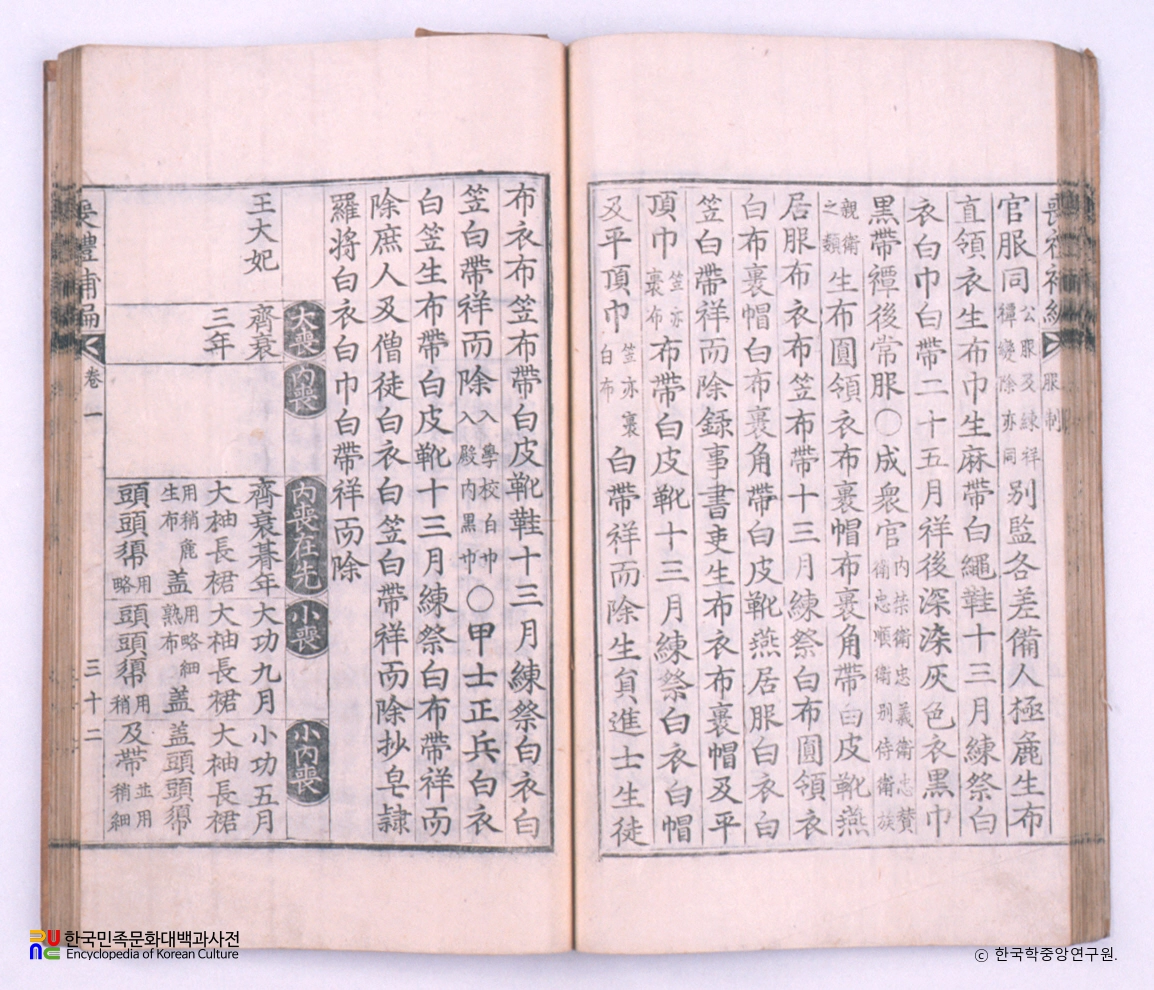 服制
官服同公服及練祥禫變除亦同別監各差備人極麁生布
直領衣生布巾生麻帶白繩鞋十三月練祭白
衣白巾白帶二十五月祥後深染灰色衣黑巾
黑帶禫後常服○成衆官內禁衛忠義衛忠贊衛忠順衛別侍衛族
親衛之類生布圓領衣布裹帽布裹角帶白皮靴燕
居服布衣布笠布帶十三月練祭白布圓領衣
白布裹帽白布裹角帶白皮靴燕居服白衣白
笠白帶祥而除錄事書吏生布衣布裹帽及平
頂巾笠亦裹布布帶白皮靴十三月練祭白衣白帽
及平頂巾笠亦裹白布白帶祥而除生員進士生徒
布衣布笠布帶白皮靴鞋十三月練祭白衣白
笠白帶祥而除入學校白巾入殿內黑巾○甲士正兵白衣
白笠生布帶白皮靴十三月練祭白布帶祥而
除庶人及僧徒白衣白笠白帶祥而除抄皂隷
羅將白衣白巾白帶祥而除
大喪
內喪
內喪在先
小喪
小內喪
王大妃
齊衰
三年
齊衰朞年
大袖長裙
用稍麁生布盖
頭頭𢄼用略
大功九月
大袖長裙
用略細熟布盖
頭頭𢄼用稍
小功五月
大袖長裙
盖頭頭𢄼
及帶並用稍細
喪禮補編 卷一 三十二
한국민족문화대백과사전
Encyclopedia of Korean Culture
ⓒ 한국학중앙연구원.